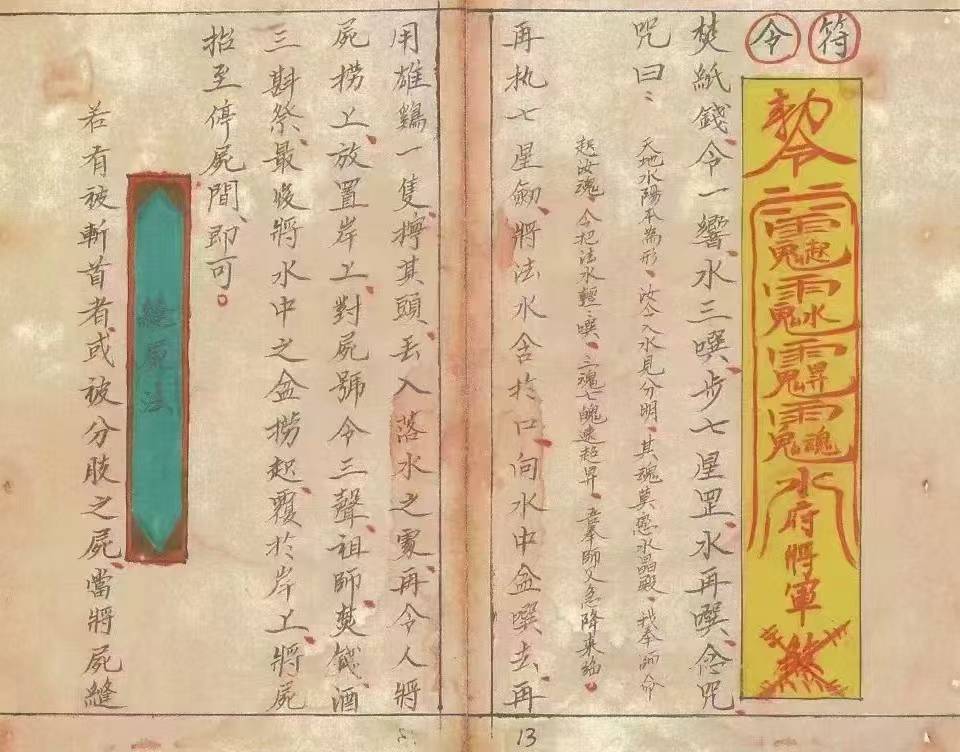 符令
勅令
水府將軍
煞
焚紙錢、令一響、水三噀、步七星罡、水再噀、念咒
咒曰:
天地水陽本為形、汝今入水見分明、其魂莫戀水晶殿、我奉師命
起汝魂、今把法水輕輕噀、三魂七魄速起昇、吾奉師父急降來臨。
再执七星劍、將法水含於口、向水中盆噀去、再
用雄鷄一隻、擰其頭、丟入落水之處、再令人將
屍捞上、放置岸上、對屍號令三聲、祖師焚錢、酒
三斟祭、最後將水中之盆捞起、覆於岸上、將屍
抬至停屍間、即可。
縫屍法
若有被斬首者或被分肢之屍、當將屍縫
13